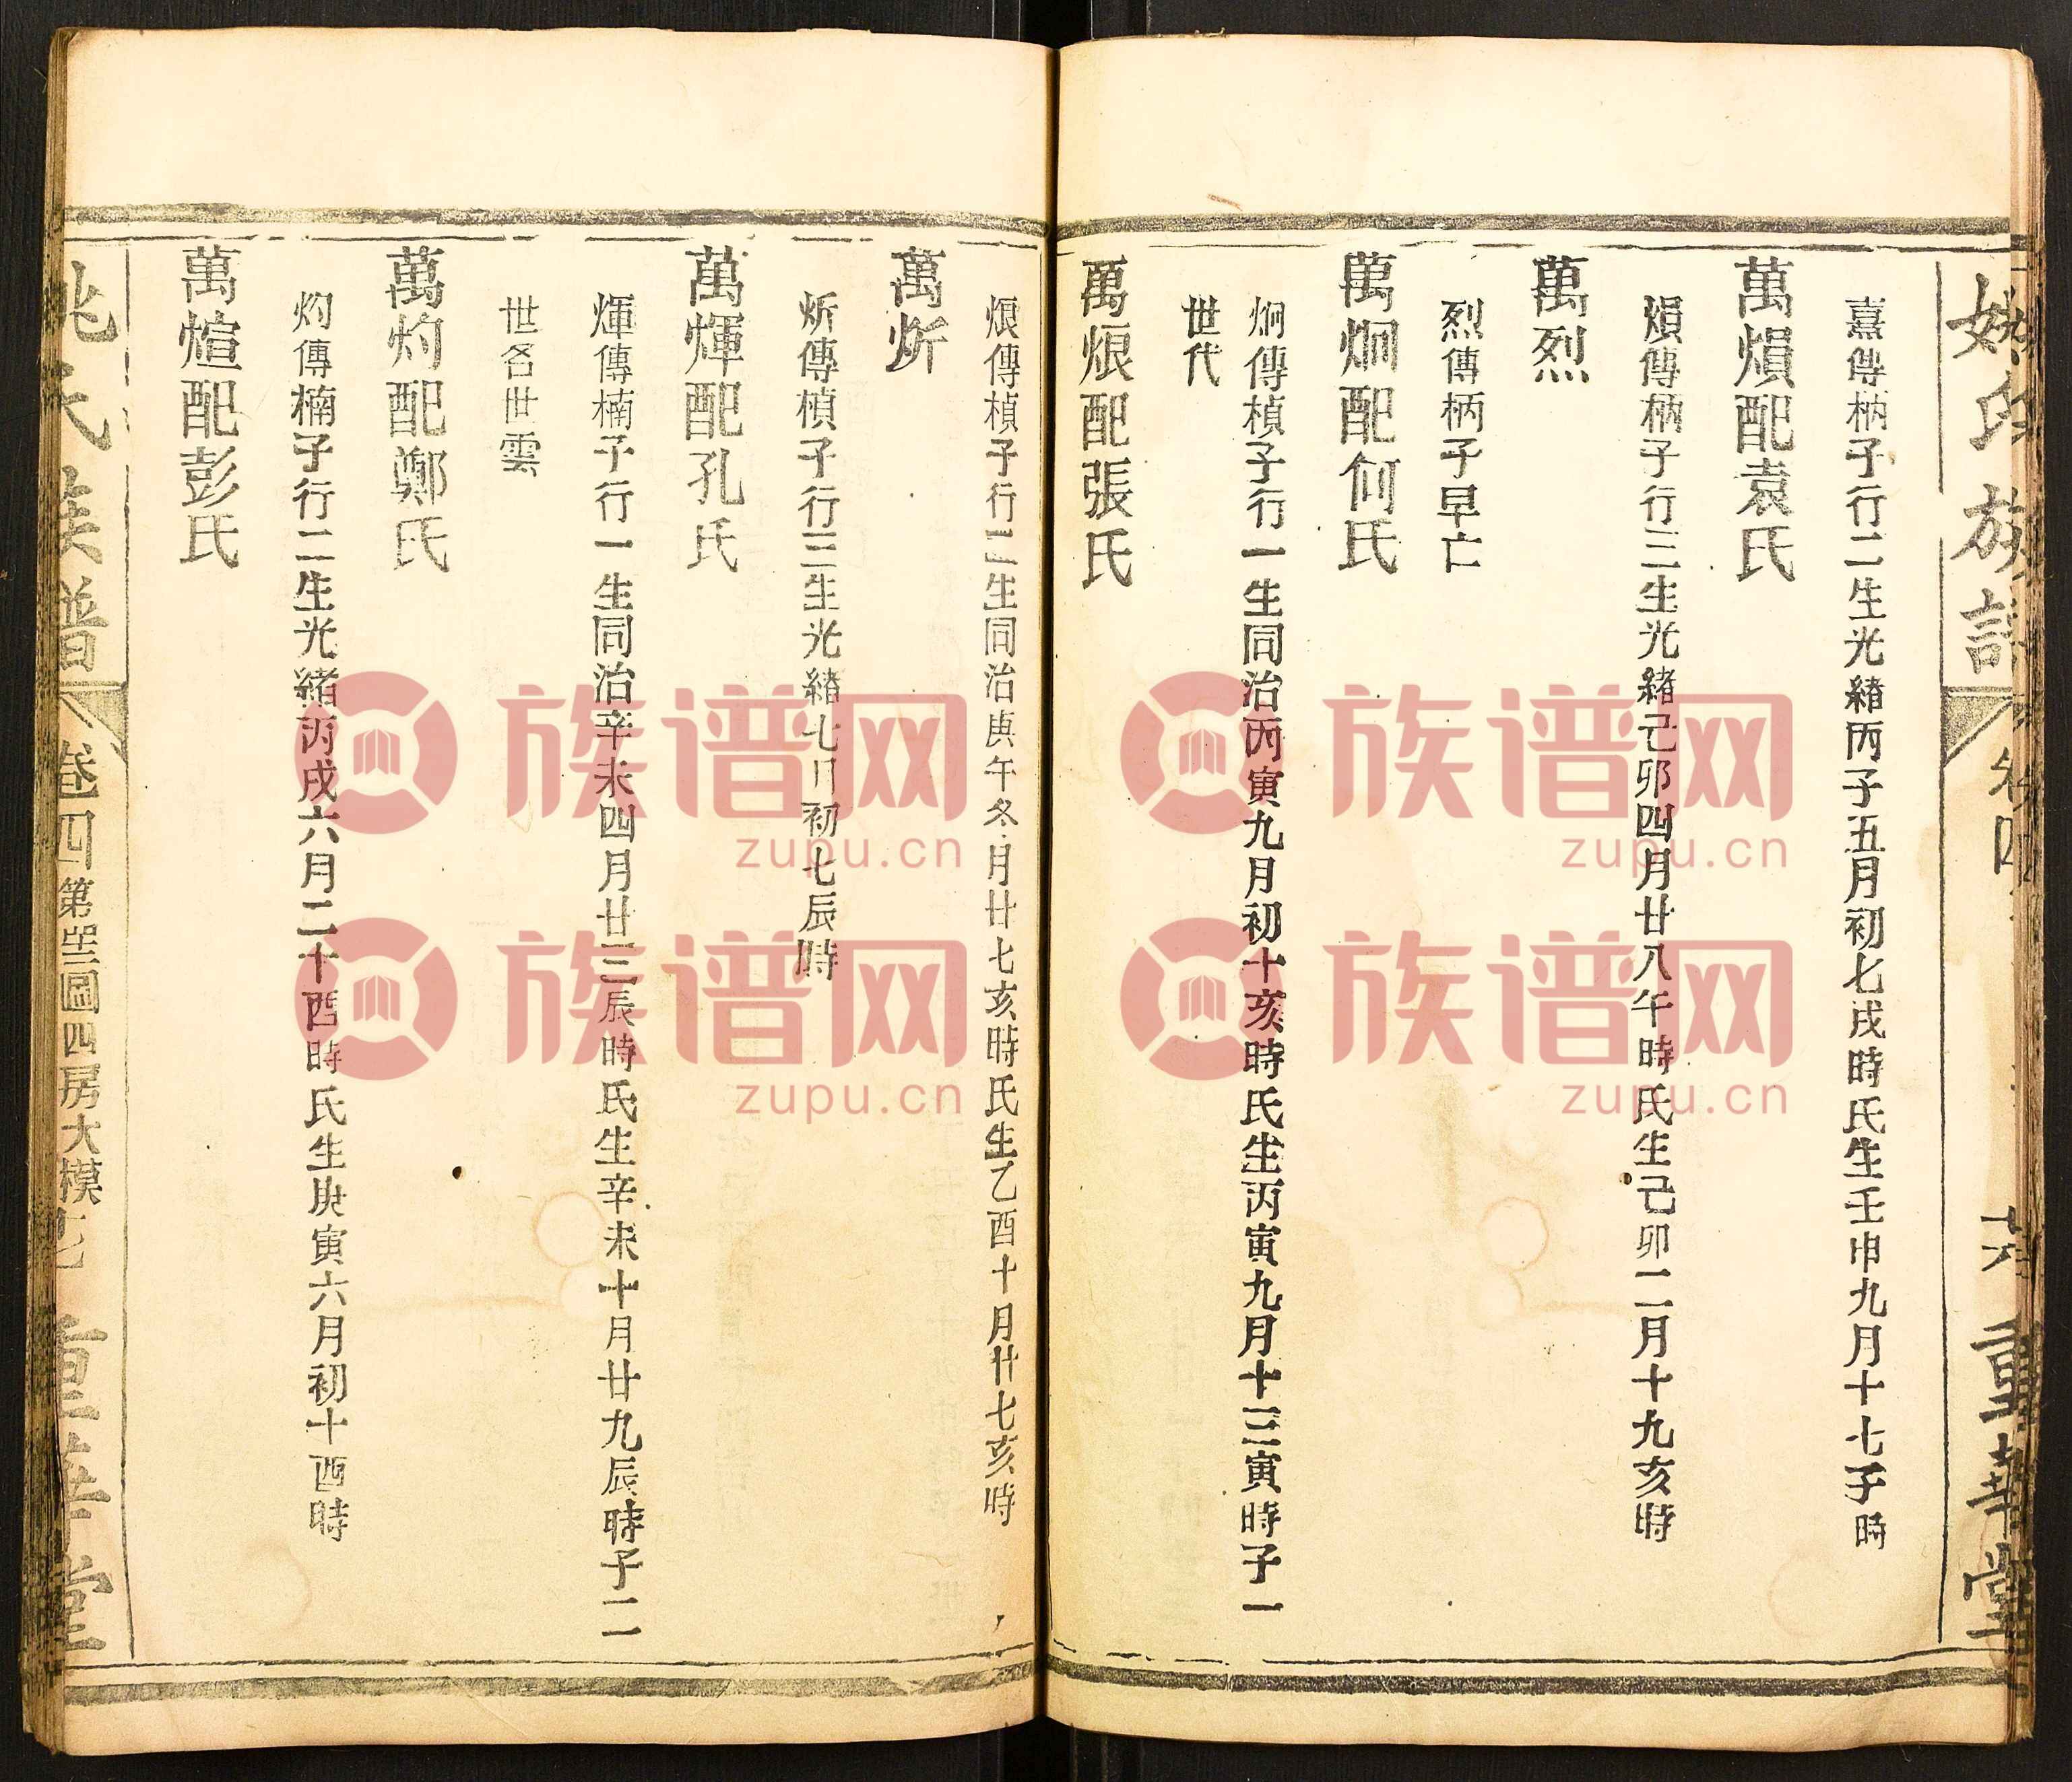 姚氏族譜
卷四
重華堂
熹傳柄子行二生光緒丙子五月初七戌時氏生壬申九月十七子時
萬熉配袁氏
熉傳柄子行三生光緒己卯四月廿八午時氏生己卯二月十九亥時
萬烈
烈傳柄子早亡
萬炯配何氏
炯傳楨子行一生同治丙寅九月初十亥時氏生丙寅九月十三寅時子一
世代
萬烺配張氏
烺傳楨子行二生同治庚午冬月廿七亥時氏生乙酉十月廿七亥時
萬炘
炘傳楨子行三生光緒七月初七辰時
萬煇配孔氏
煇傳楠子行一生同治辛未四月廿三辰時氏生辛未十月廿九辰時子二
世名世雲
萬灼配鄭氏
灼傳楠子行二生光緒丙戌六月二十酉時氏生庚寅六月初十酉時
萬煊配彭氏
姚氏族譜
卷四第垩圖四房大模
重華堂
族谱网
zupu.cn
族谱网
zupu.cn
族谱网
zupu.cn
族谱网
zupu.cn